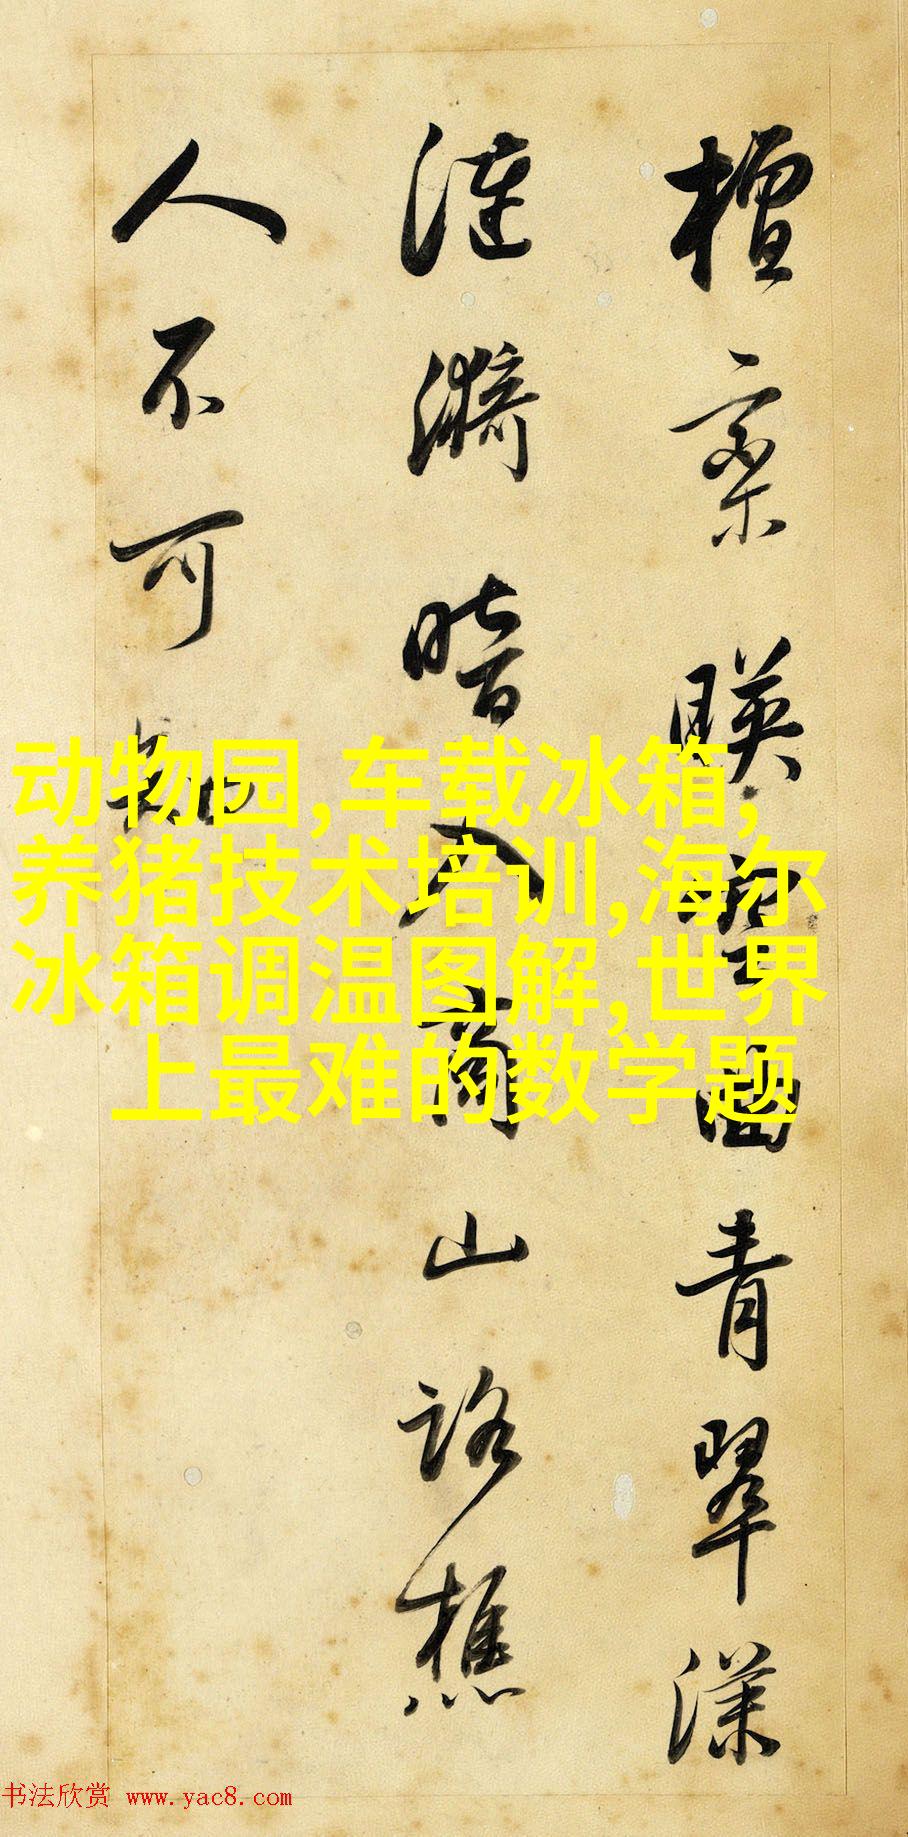 檀欒映空曲青翠漾
漣漪暗入商山路樵
人不可知
动物园,车载冰箱,
养猪技术培训,海尔
冰箱调温图解,世界
上最难的数学题
书法欣赏 www.yac8.com